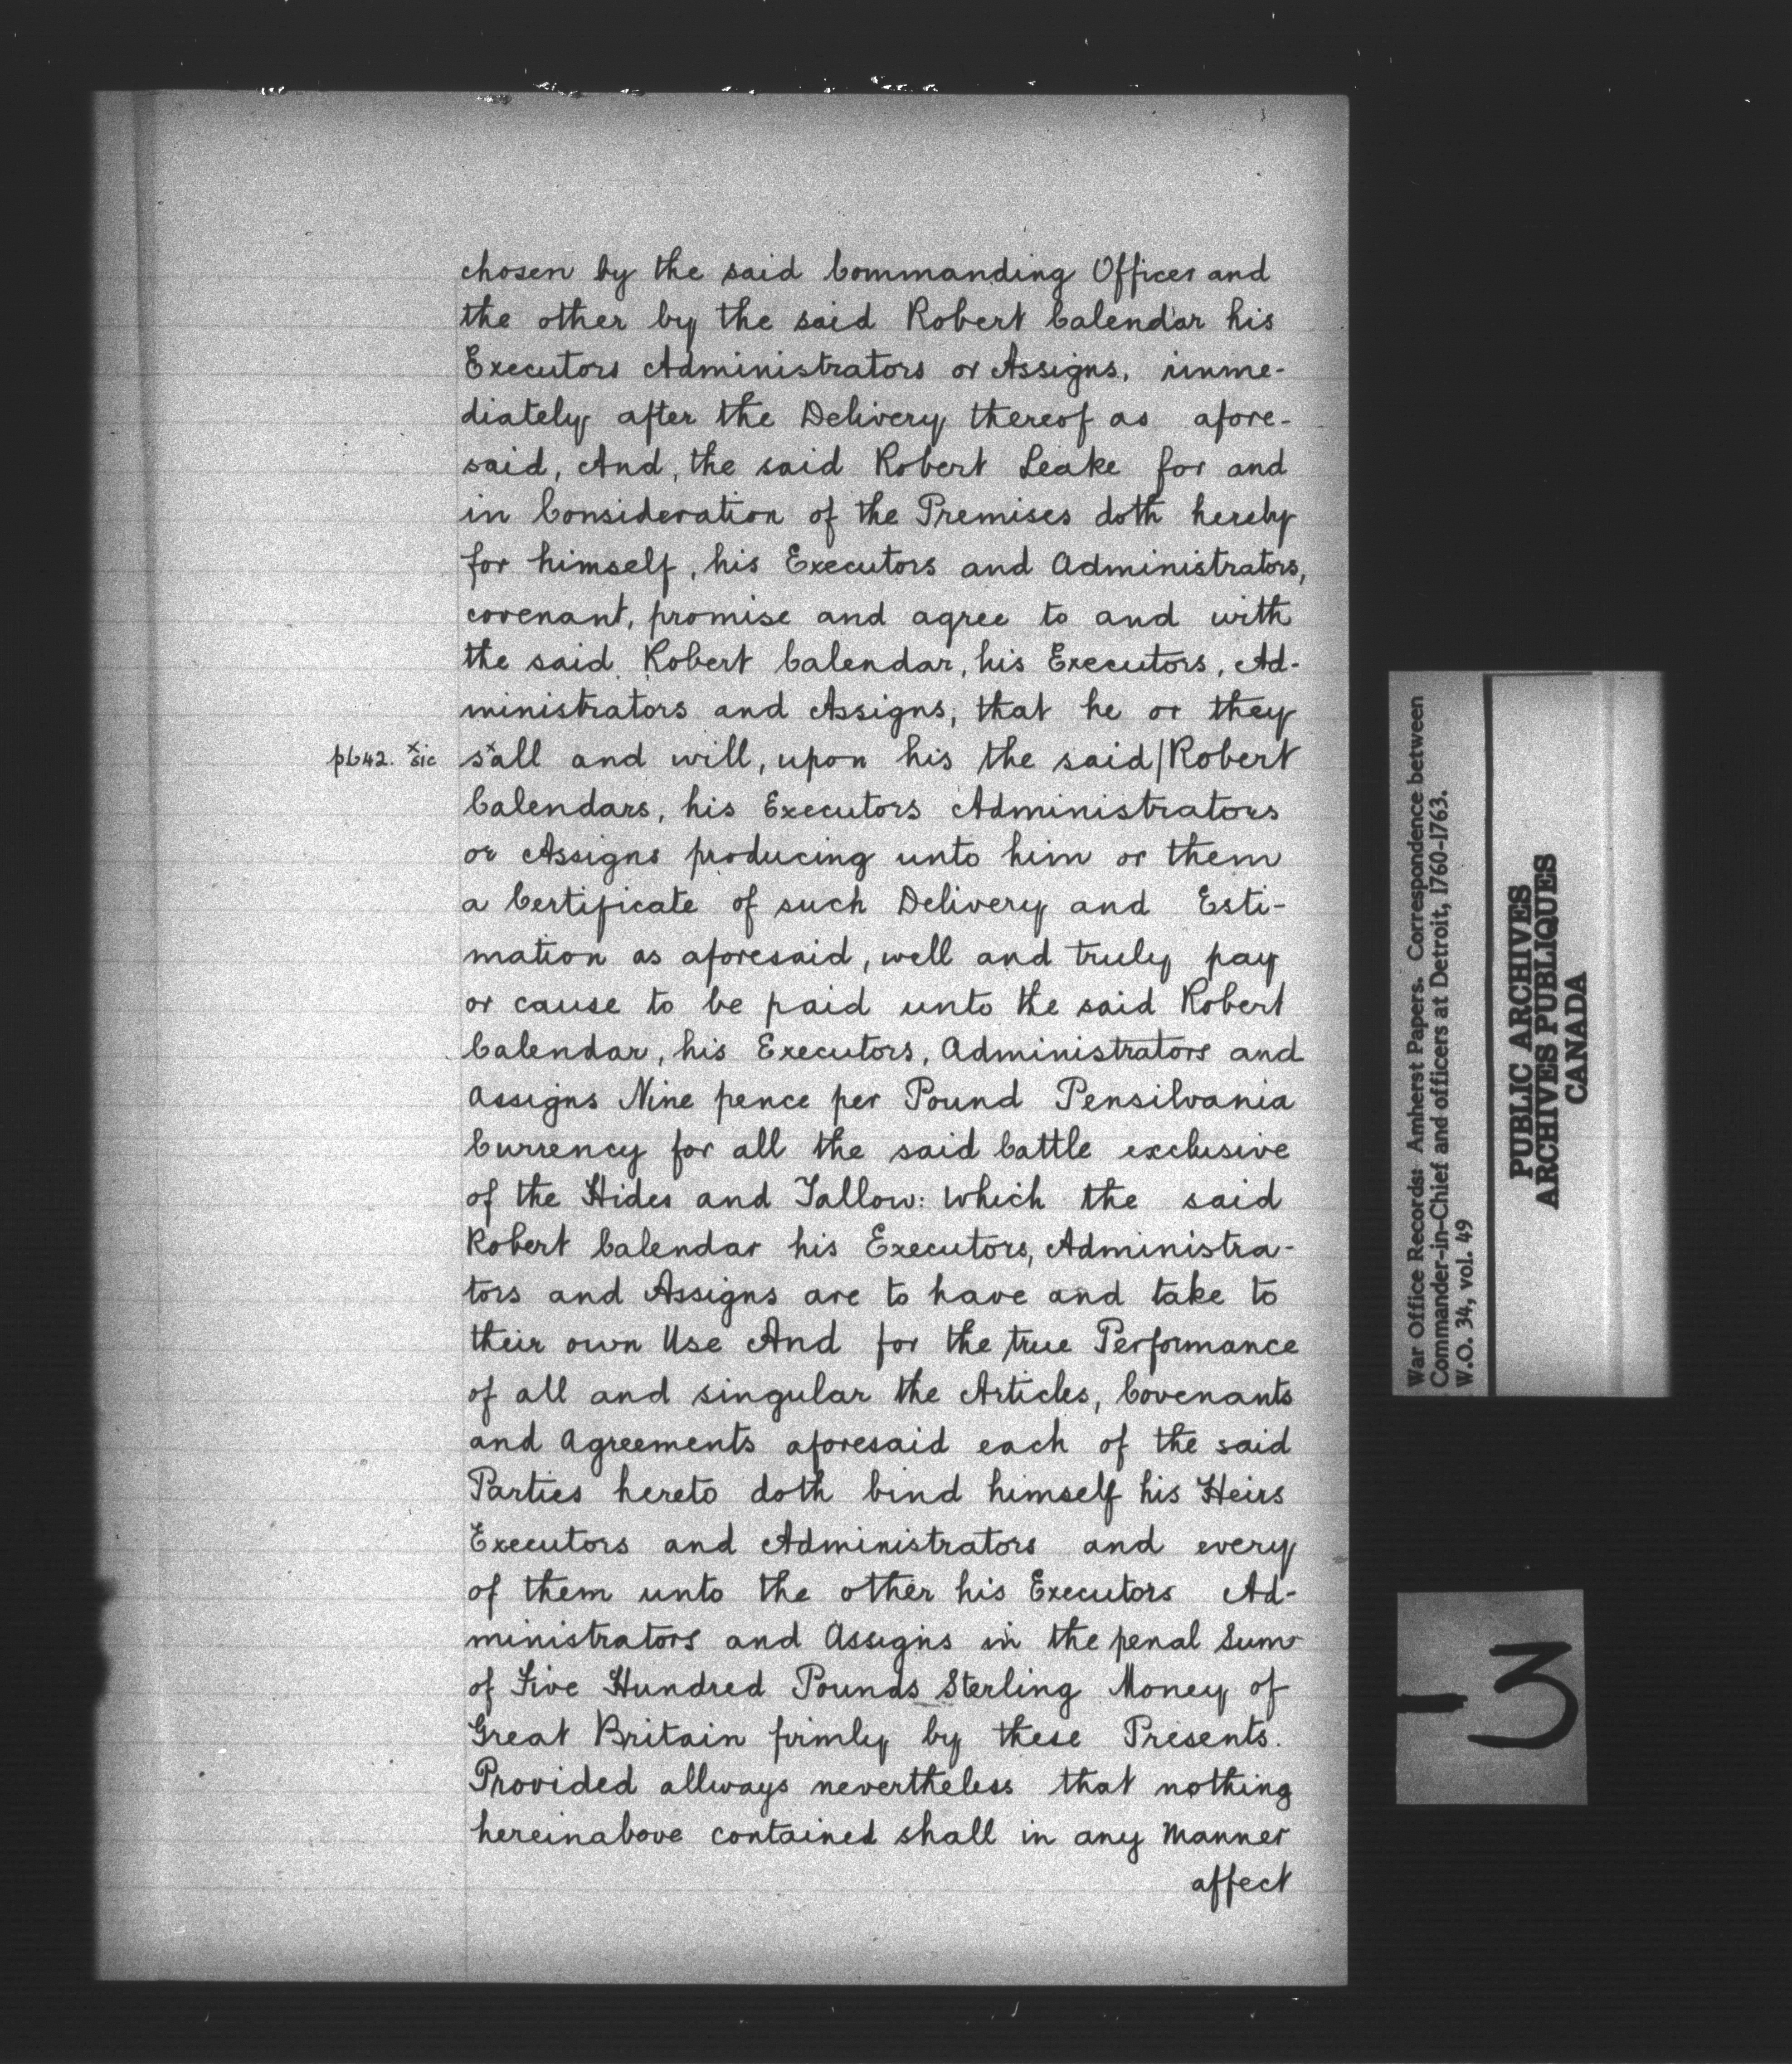 chosen by the said Commanding Officer and
the other by the said Robert Calendar his
Executors Administrators or Assigns, imme-
diately after the Delivery thereof as afore-
said, And, the said Robert Leake for and
in Consideration of the Premises doth hereby
for himself, his Executors and Administrators,
covenant, promise and agree to and with
the said Robert Calendar, his Executors, Ad-
ministrators and Assigns, that he or they
p642. x sic sxall and will, upon his the said/Robert
Calendars, his Executors Administrators
or Assigns producing unto him or them
a Certificate of such Delivery and Esti-
mation as aforesaid, well and truly pay
or cause to be paid unto the said Robert
Calendar, his Executors, Administrators and
Assigns Nine pence per Pound Pensilvania
Currency for all the said Cattle exclusive
of the Hides and Tallow: which the said
Robert Calendar his Executors, Administra-
tors and Assigns are to have and take to
their own Use And for the true Performance
of all and singular the Articles, Covenants
and Agreements aforesaid each of the said
Parties hereto doth bind himself his Heirs
Executors and Administrators and every
of them unto the other his Executors Ad-
ministrators and Assigns in the penal Sum
of Five Hundred Pounds Sterling Money of
Great Britain firmly by these Presents.
Provided allways nevertheless that nothing
hereinabove contained shall in any Manner
affect
War Office Records: Amherst Papers. Correspondence between
Commander-in-Chief and officers at Detroit, 1760-1763.
W.O. 34, vol. 49
PUBLIC ARCHIVES
ARCHIVES PUBLIQUES
CANADA
-3